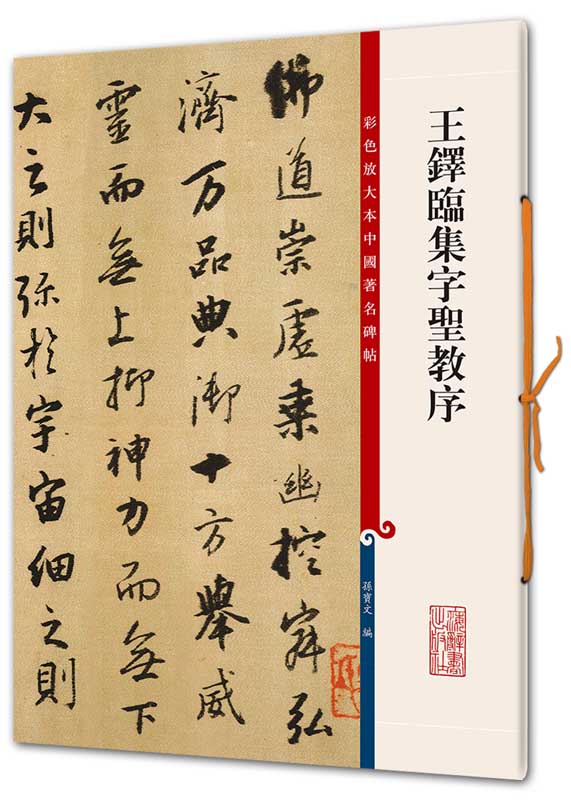 王鐸臨集字聖教序
上海辭書
出版社
彩色放大本中國著名碑帖
孫寶文 編
佛道崇虛乗幽控寂弘
濟万品典御十方舉威
靈而無上抑神力而無下
大之則弥於宇宙細之則